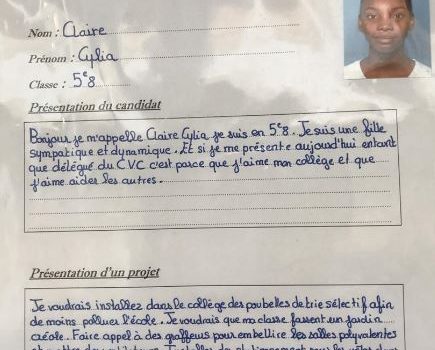 Nom : Claire
Prénom : Cylia
Classe : 5e8
Présentation du candidat
Bonjour je m'appelle Claire Cylia je suis en 5e8. Je suis une fille
sympatique et dynamique. Et si je me présente aujourd'hui entant
que délégué du CVC c'est parce que j'aime mon collège et que
j'aime aider les autres.
Présentation d'un projet
Je voudrais installez dans le collège des poubelles de trie sélectif afin
de moins polluer l'école. Je voudrais que ma classe fassent un jardin
créole. Faire appel à des graffeurs pour embellire les salles polyvalentes